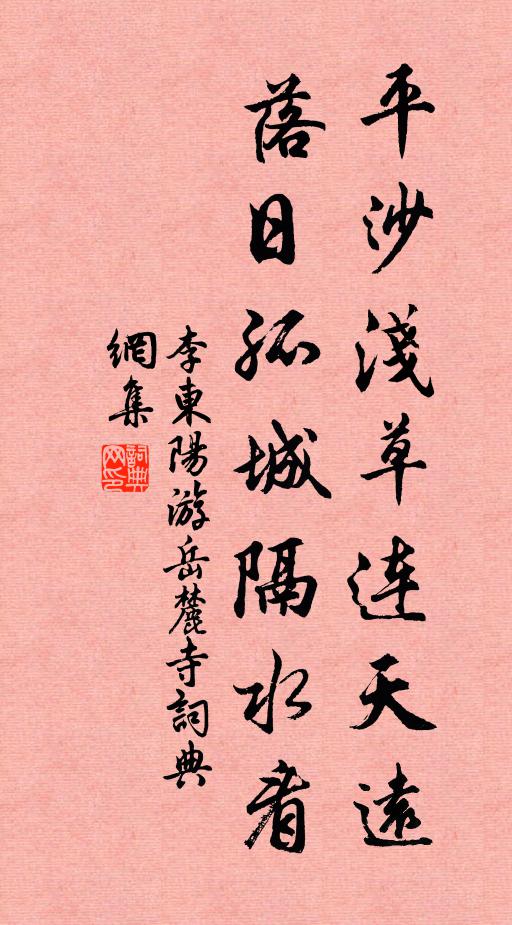 平沙淺草连天遠
落日孤城隔水看
李東陽游岳麓寺詞典
網集
詞典
网印